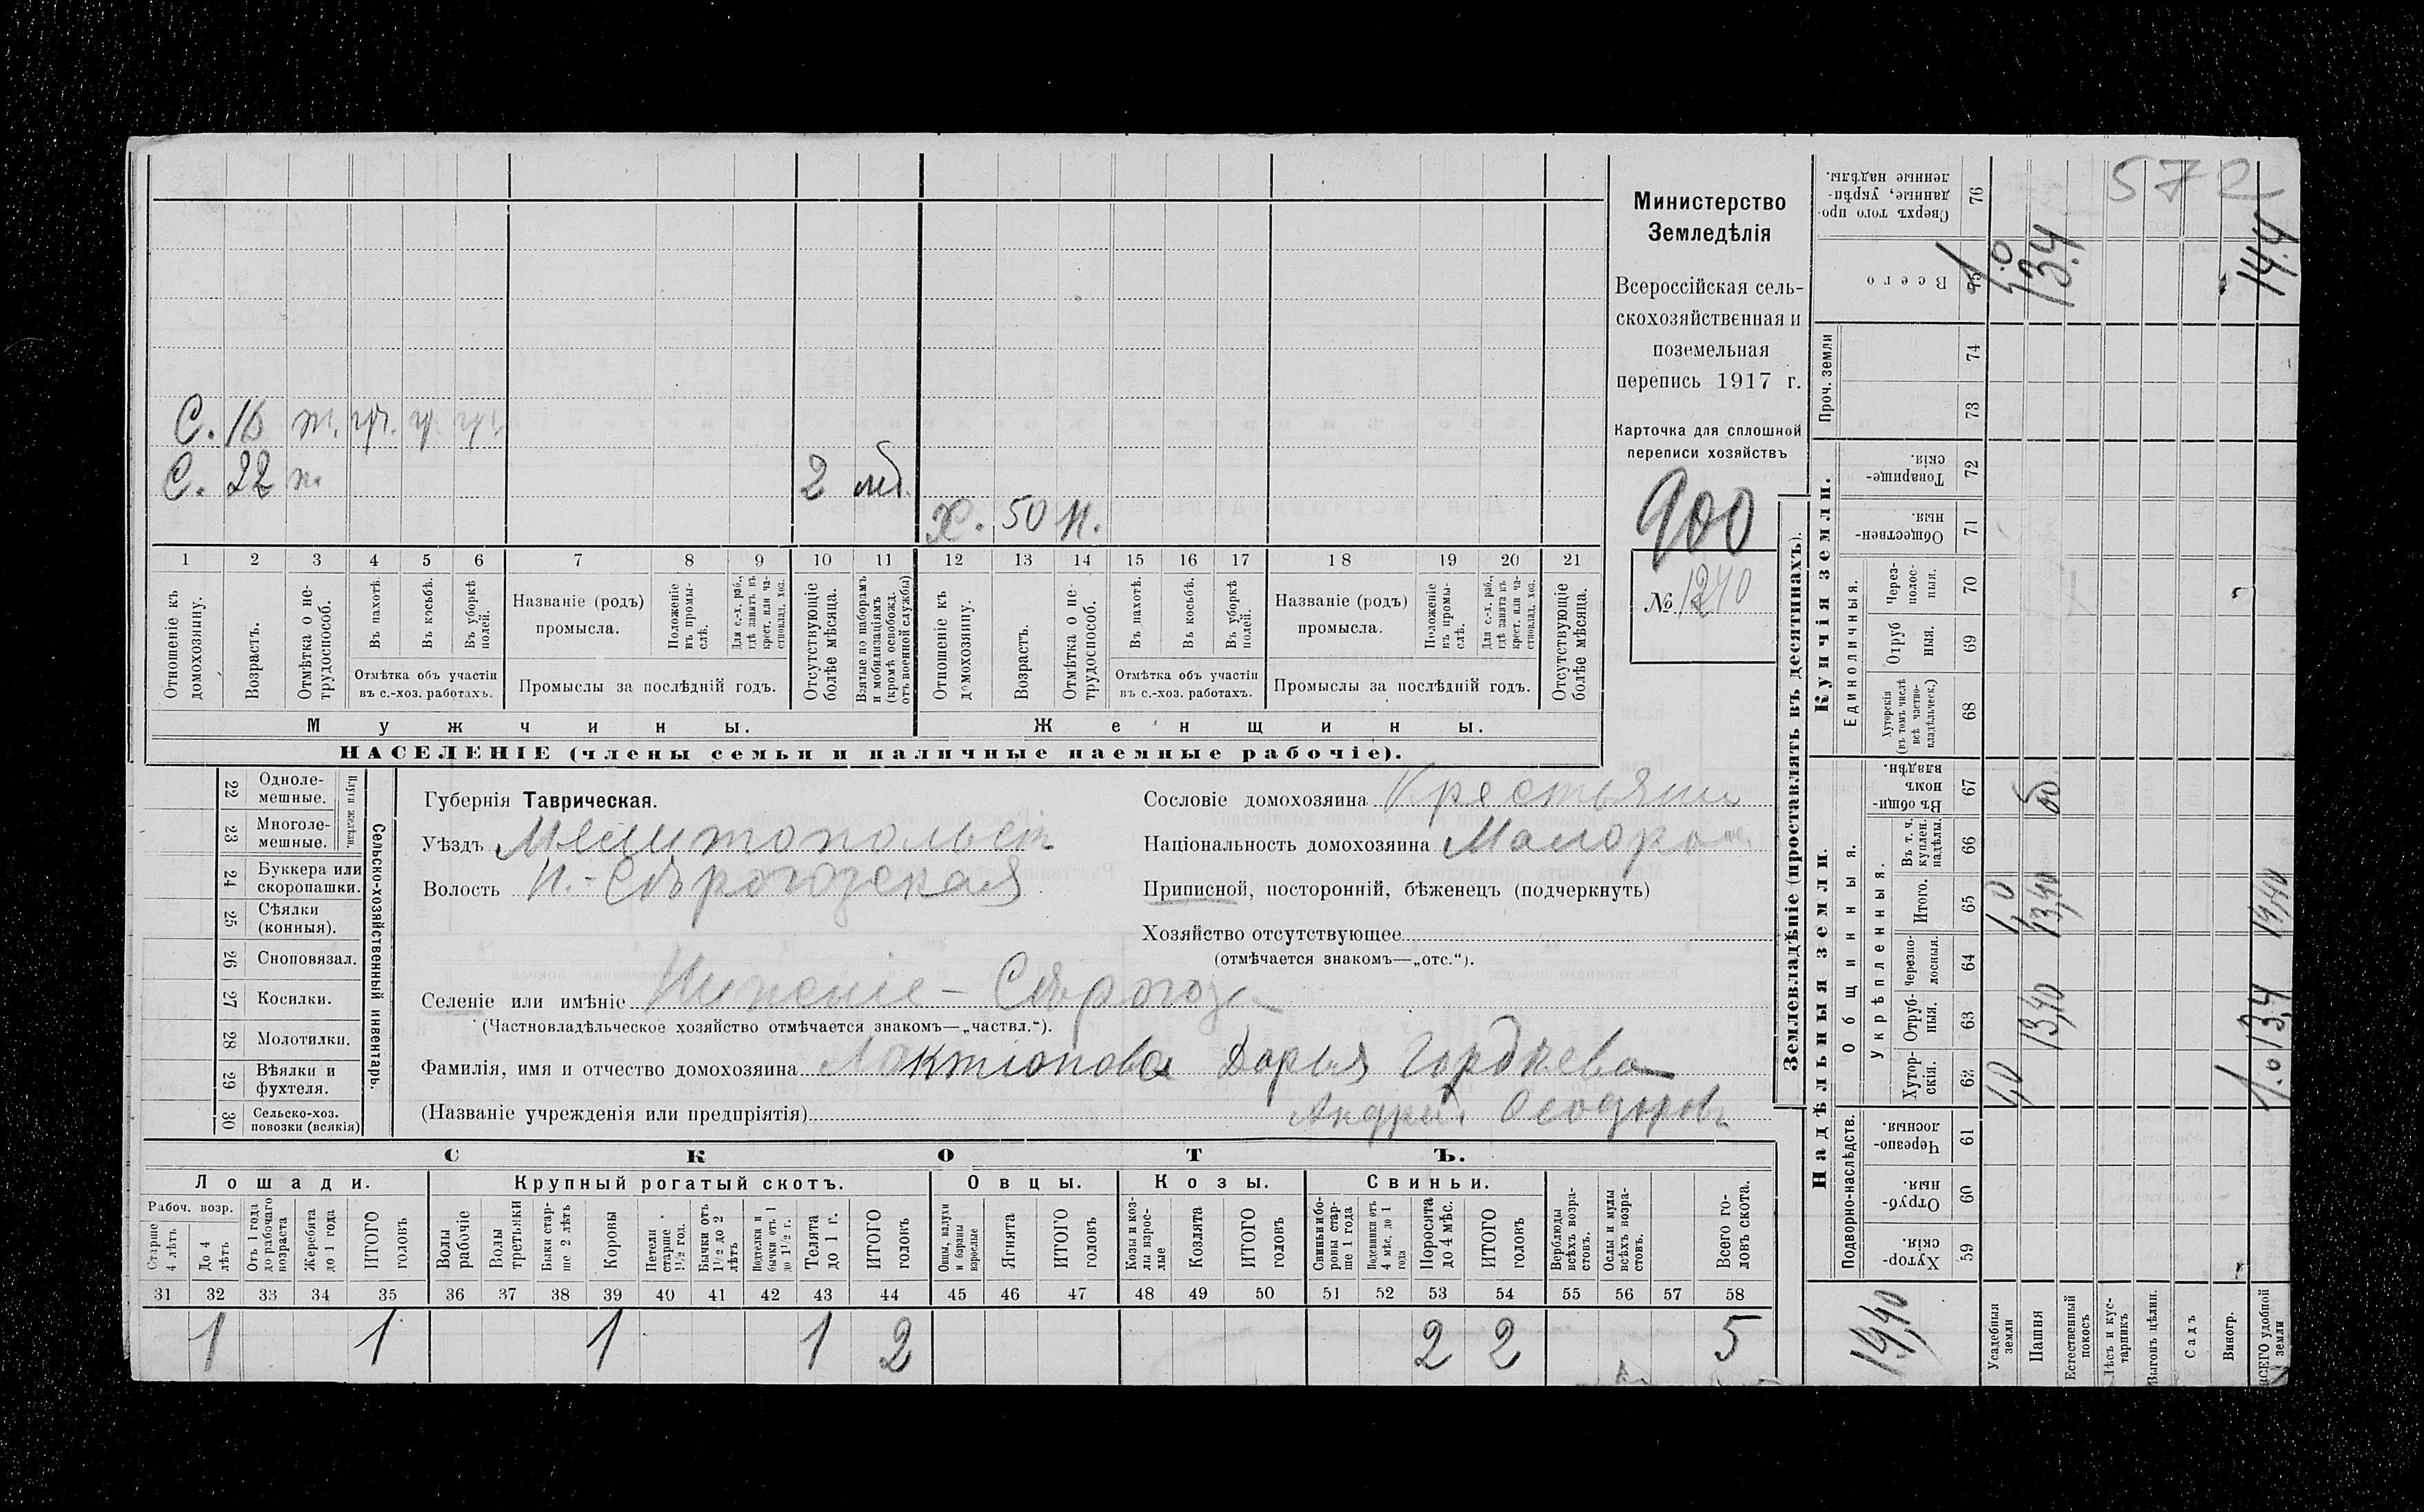 572
Министерство
Земледѣлія
Всероссійская сель-
скохозяйственная и
поземельная
перепись 1917 г.
Карточка для сплошной
переписи хозяйствъ
900
№ 1240
С. т. гр. гр. гр.
С. 22 т. 2 мб.
Х. 50 Н.
1 2 3 4 5 6 7 8 9 10 11 12 13 14 15 16 17 18 19 20 21
Отношеніе къ домохозяину.
Возрастъ.
Отмѣтка о не-трудоспособ.
Въ пахотѣ.
Въ косьбѣ.
Въ уборкѣ полей.
Отмѣтка объ участіи
въ с.-хоз. работахъ.
Названіе (родъ)
промысла.
Положеніе въ промы-слѣ.
Для с.-х. раб., гдѣ занятъ въ крест. или ча-стновлад. хоз.
Промыслы за послѣдній годъ.
Отсутствующіе болѣе мѣсяца.
Взятые по наборамъ и мобилизаціямъ (кромѣ освобожд. отъ военной службы)
Отношеніе къ домохозяину.
Возрастъ.
Отмѣтка о не-трудоспособ.
Въ пахотѣ.
Въ косьбѣ.
Въ уборкѣ полей.
Отмѣтка объ участіи
въ с.-хоз. работахъ.
Названіе (родъ)
промысла.
Положеніе въ промы-слѣ.
Для с.-х. раб., гдѣ занята въ крест. или ча-стновлад. хоз.
Промыслы за послѣдній годъ.
Отсутствующіе болѣе мѣсяца.
Мужчины. Женщины.
НАСЕЛЕНІЕ (члены семьи и наличные наемные рабочіе).
22 Одноле-мешные.
23 Многоле-мешные.
Плуги желѣзн.
24 Буккера или скоропашки.
25 Сѣялки (конныя).
26 Сноповязал.
27 Косилки.
28 Молотилки.
29 Вѣялки и фухтеля.
30 Сельско-хоз. повозки (всякія)
Сельско-хозяйственный инвентарь.
Губернія Таврическая.
Уѣздъ Мелитопольск
Волость Н.-Сѣрогозская
Селеніе или имѣніе Нижніе-Сѣрогозы
(Частновладѣльческое хозяйство отмѣчается знакомъ—„частвл.“).
Фамилія, имя и отчество домохозяина Лактіонова Дарья Гордѣева
(Названіе учрежденія или предпріятія) Андрей
Сословіе домохозяина Крестьяни
Національность домохозяина Малоро
Приписной, посторонній, бѣженецъ (подчеркнуть)
Хозяйство отсутствующее
(отмѣчается знакомъ—„отс.“).
СКОТЪ.
Лошади. Крупный рогатый скотъ. Овцы. Козы. Свиньи.
Рабоч. возр.
Старше 4 лѣтъ
До 4 лѣтъ
Отъ 1 года до рабочаго возраста
Жеребята до 1 года
ИТОГО головъ
Волы рабочіе
Волы третьяки
Быки стар-ше 2 лѣтъ
Коровы
Нетели старше 1½ год.
Бычки отъ 1½ до 2 лѣтъ
Подтелки и бычки отъ 1 до 1½ г.
Телята до 1 г.
ИТОГО головъ
Овцы, валухи и бараны взрослые
Ягнята
ИТОГО головъ
Козы и коз-лы взрос-лые
Козлята
ИТОГО головъ
Свиньи и бо-ровы стар-ше 1 года
Подсвинки отъ 4 мѣс. до 1 года
Поросята до 4 мѣс.
ИТОГО головъ
Верблюды всѣхъ возра-стовъ.
Ослы и мулы всѣхъ возра-стовъ.
Всего го-ловъ скота.
31 32 33 34 35 36 37 38 39 40 41 42 43 44 45 46 47 48 49 50 51 52 53 54 55 56 57 58
1 1 1 1 2 2 2 5
Землевладѣніе (проставлять въ десятинахъ).
Купчія земли.
Надѣльныя земли.
Сверхъ того про-данные, укрѣп-ленные надѣлы. 76
Всего 75 1.0 13.4 14.4
Проч. земли 74 73
Товарище-скія. 72
Обществен-ныя. 71
Единоличныя.
Через-полос-ныя. 70
Отруб ныя. 69
Хуторскія (въ томъ числѣ всѣ частно-владѣльческ.) 68
Общинныя.
Въ общи-номъ владѣн. 67
Укрѣпленныя.
Въ т. ч. куплен. надѣлы. 66
Итого. 65 1,0 13,40 14,40
Черезпо-лосныя. 64
Отруб-ныя. 63 13,40 13,4
Хутор-скія. 62 1,0 1.0
Подворно-наслѣдств.
Черезпо-лосныя. 61
Отруб-ныя. 60
Хутор-скія. 59
14,40
Усадебныя земли
Пашня
Естественный покосъ
Лѣсъ и кус-тарникъ
Выгонъ цѣлин.
Садъ
Виногр.
ВСЕГО удобной земли